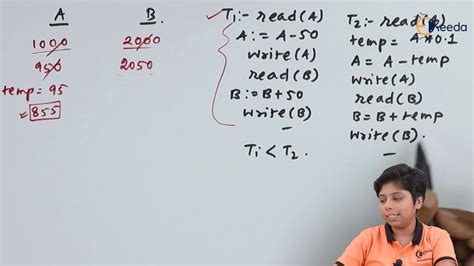 A B.
1000 2000
950 2050
temp = 95
= 855
T1:- read(A)
A := A-50
write(A)
read(B)
B := B+50
write(B)
—
T1 < T2 .
T2:- read(A)
temp = A*0.1
A = A - temp
write(A)
read(B)
B = B + temp
write(B) .
—
Keeda